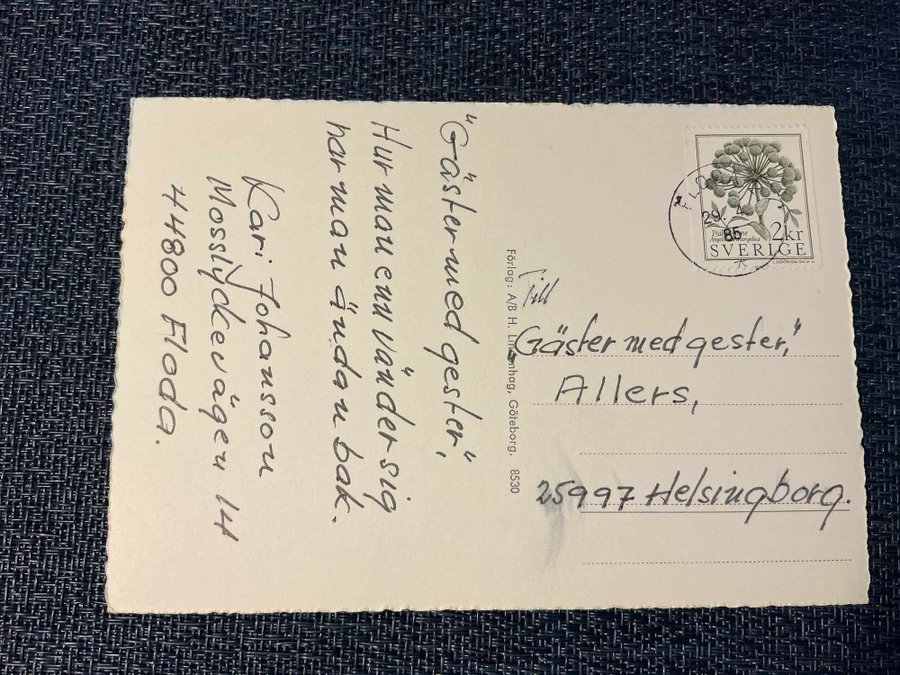 "Gäster med gester,"
Hur man enn vänder sig
har man ändan bak.
Kari Johansson
Mosslyckevägen 14
44800 Floda.
Förlag: A/B H. Lindenhag, Göteborg. 8530
2kr
SVERIGE
29. 4
85
Till
"Gäster med gester,"
Allers,
25997 Helsingborg.